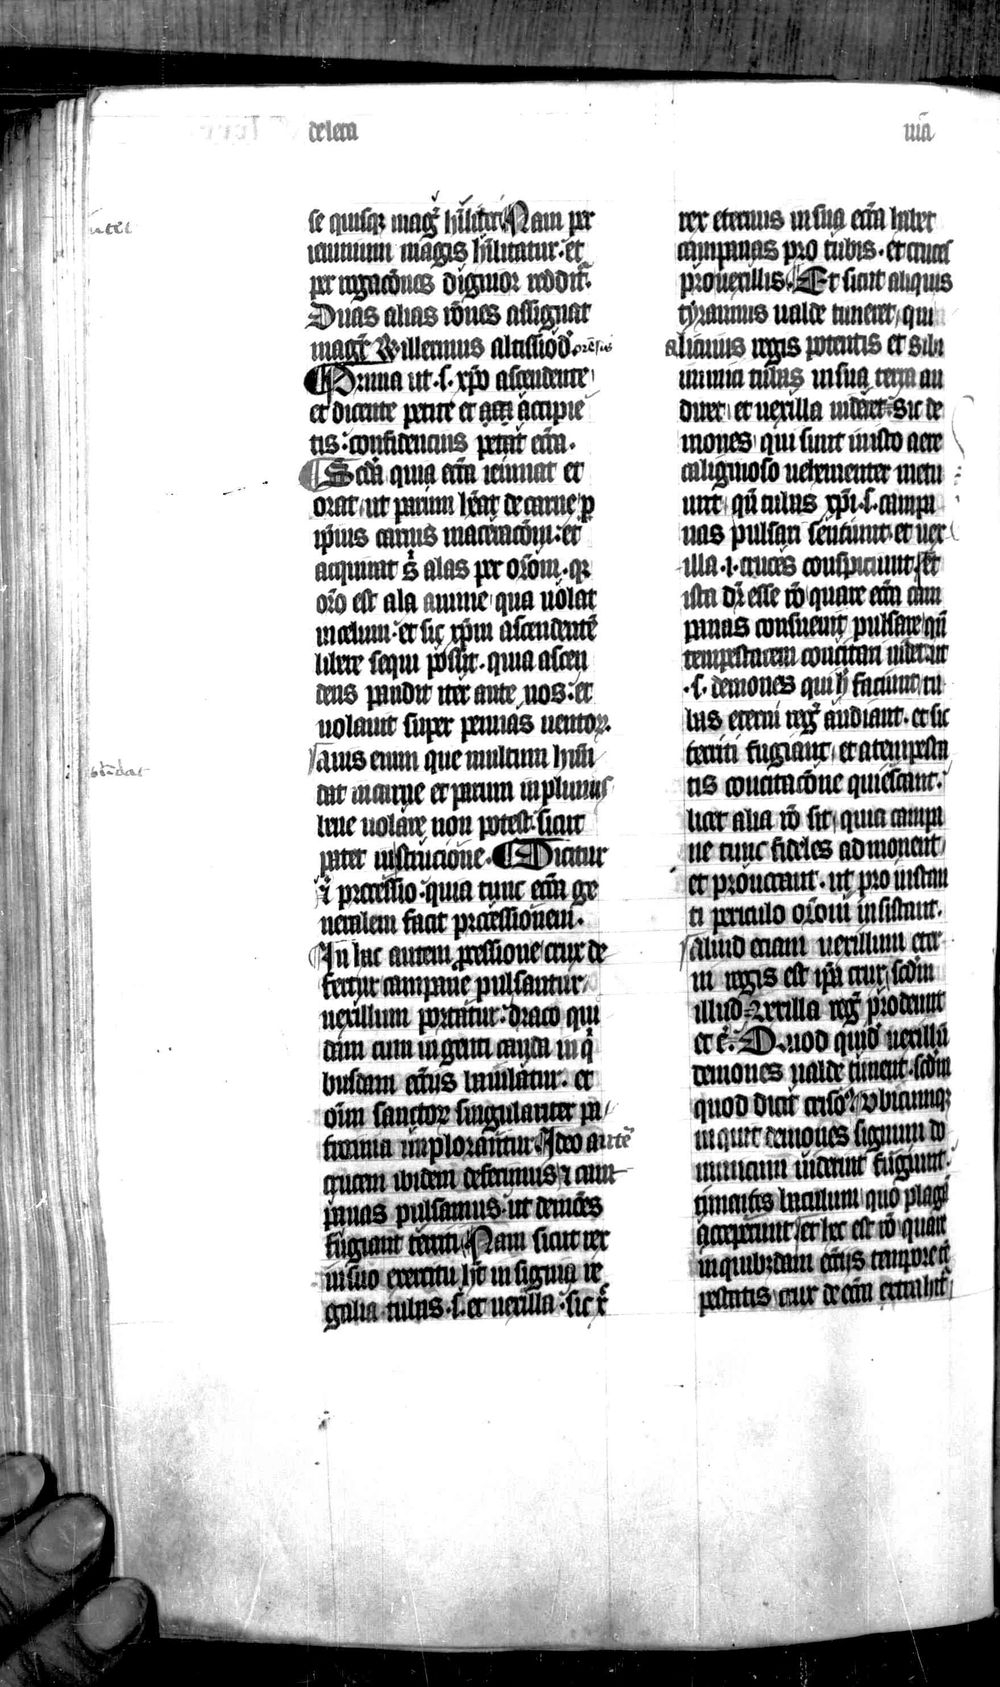 de leta
nia
se quisq; mag̃ hũiliĩ Nam per
ieiunium magis hũiliatur · et
per rogacões dignior reddit̃ ·
Duas alias rões assignat
magr̃ Willermus altissiod̃
Prima ut · s · xp̃o ascendente
et dicente petite et accipie
tis : confidencius petat ecc̃a ·
Scd̃a quia ecc̃a ieiunat et
orat ut parum hẽat de carne p
ip̃ius carnis maceracõem : et
acquirat s̃ alas per orõem · q;
orõ est ala anime qua uolat
in celum · et sic xp̃m ascendentẽ
libere sequi possit · quia ascen
dens pandit iter ante nos : et
uolauit super pennas uentoꝝ ·
auis enim que multum hab̃u
dat in carne et parum in plumis
bene uolare non potest · sicut
patet in strucione · Dicitur
⁊ processio : quia tunc ecc̃a ge
neralem facit processionem ·
In hac autem ꝓcessione crux de
fertur campane pulsantur
uexillum portatur : draco qui
dam cum ingenti cauda in q̃
busdam ecc̃iis baiulatur · et
oĩm sanctoꝝ singulariter pa
trocinia implorantur Ideo autẽ
crucem ibidem deferimus ⁊ cam
panas pulsamus · ut demões
fugiant territi Nam sicut rex
in suo exercitu ht̃ insignia re
galia tubas · s̃ · et uexilla · sic x̃
rex eternus in sua ecc̃a habet
campanas pro tubis · et cruces
pro uexillis · Et sicut aliquis
tyrannus ualde timeret qui
alicuius regis potentis et sibi
inimici tubas in sua terra au
diret et uexilla uideret Sic de
mones qui sunt in isto aere
caliginoso uehementer metu
unt qñ tubas xp̃i · s · campa
nas pulsari sentiunt et uex
illa · i · cruces conspiciunt Et
ista dr̃ esse rõ quare ecc̃a cam
panas consueuit pulsare qñ
tempestatem concitari uidet · ut
· s · demones qui h̃ faciunt tu
bas eterni reg̃ audiant · et sic
territi fugiant et a tempesta
tis concitacõne quiescant ·
licet alia rõ sit quia campa
ne tunc fideles admonent
et prouocant · ut pro instan
ti periculo orõni insistant ·
aliud etiam uexillum eter
ni regis est ip̃a crux scd̃m
illud Vexilla reg̃ prodeunt
et c̃ · Quod quid̃ uexillũ
demones ualde timent · scd̃m
quod dicit crisõ Vbicumq;
inquit demones signum do
minicum uiderint fugiunt ·
timentes baculum quo plagã
acceperunt et hec est rõ quare
in quibusdam ecc̃iis tempore tẽ
pestatis crux de ecc̃a extrahit̃